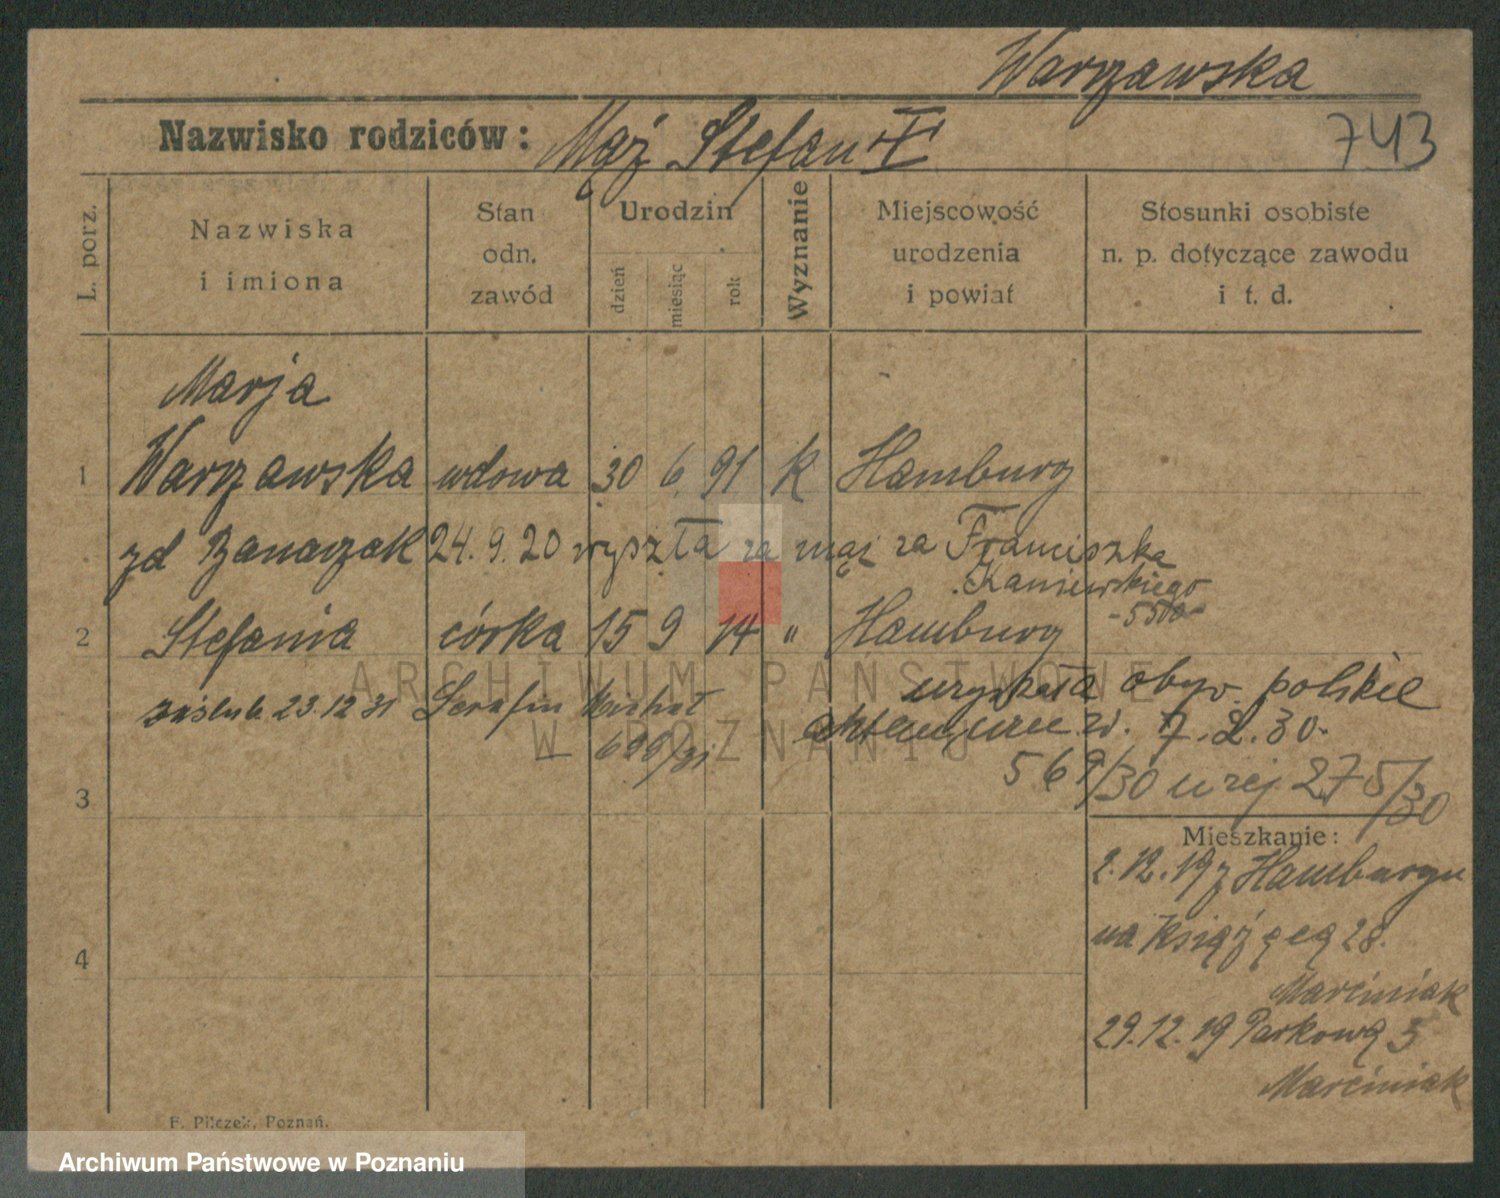 Warszawska
Nazwisko rodziców: Mąż Stefan
743
L. porz.
Nazwiska i imiona
Stan odn. zawód
Urodzin
dzień
miesiąc
rok
Wyznanie
Miejscowość urodzenia i powiat
Stosunki osobiste n. p. dotyczące zawodu i t. d.
Marja
1 Warszawska wdowa 30 6. 91 K Hamburg
zd Banaszak 24.9.20 wyszła za mąż za Franciszka
Kaniewskiego
-5500-
2 Stefania córka 15 9 14 " Hamburg
zaślub. 23.12.31 Serafin Michał
699/31
obyw. polskie
7.2.30.
569/30 rej 275/30
3
Mieszkanie:
2.12.19 z Hamburgu
na Książęcą 28.
Marciniak
4
29.12.19 Parkową 3
Marciniak
F. Pilczek, Poznań.
ARCHIWUM PAŃSTWOWE
W POZNANIU
Archiwum Państwowe w Poznaniu